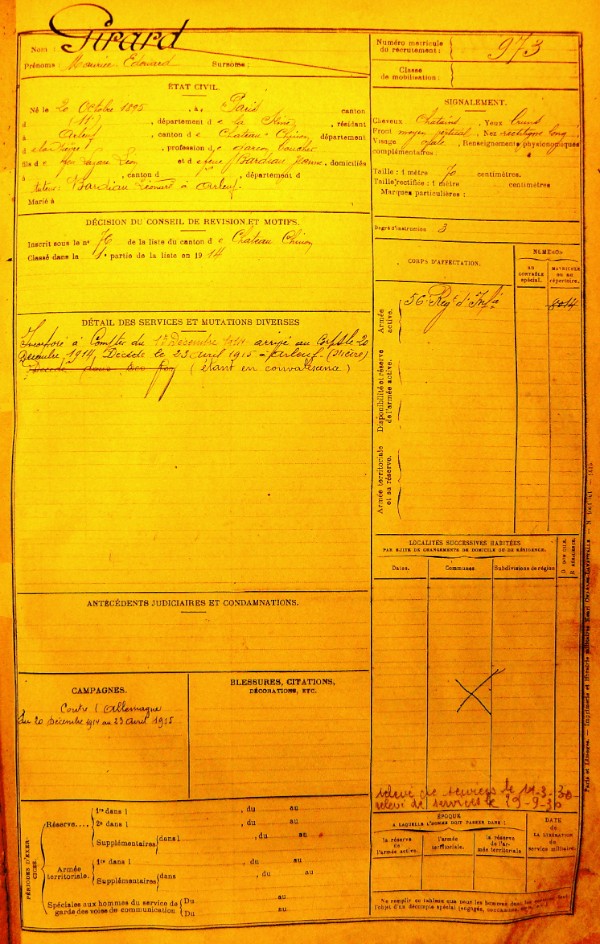 Nom : Girard
Prénoms Maurice Edouard Surnoms :
Numéro matricule du recrutement : 973
Classe de mobilisation :
ÉTAT CIVIL.
Né le 20 Octobre 1895, à Paris canton
d 11e, département de la Seine, résidant
à Arleuf, canton de Château-Chinon, département
de la Nièvre, profession de garçon boucher
fils de et de feue domiciliés
à , canton d , département d
à Arleuf
Marié à
SIGNALEMENT.
Cheveux Châtains, Yeux bruns
Front moyen vertical, Nez rectiligne long
Visage ovale, Renseignements physionomiques
complémentaires :
Taille : 1 mètre 70 centimètres.
Taille rectifiée : 1 mètre centimètres
Marques particulières :
Degré d'instruction 3
DÉCISION DU CONSEIL DE REVISION ET MOTIFS.
Inscrit sous le n° 76 de la liste du canton de Château Chinon
Classé dans la 1e partie de la liste en 1914
CORPS D'AFFECTATION.
NUMÉROS
AU CONTRÔLE spécial.
MATRICULE OU AU répertoire.
Armée active.
56e Régt d'Infie
8014
Disponibilité et réserve de l'armée active.
Armée territoriale et sa réserve.
DÉTAIL DES SERVICES ET MUTATIONS DIVERSES
Incorporé à Compter du 17 Décembre 1914 arrivé au Corps le 20
Décembre 1914, Décédé le 23 avril 1915 à Arleuf (Nièvre)
Décédé dans ses foy (étant en convalescence)
LOCALITÉS SUCCESSIVES HABITÉES
PAR SUITE DE CHANGEMENTS DE DOMICILE OU DE RÉSIDENCE.
Dates.
Communes.
Subdivisions de région
ANTÉCÉDENTS JUDICIAIRES ET CONDAMNATIONS.
CAMPAGNES.
Contre l'Allemagne
du 20 Décembre 1914 au 23 Avril 1915
BLESSURES, CITATIONS,
DÉCORATIONS, ETC.
relevé de services le 14-3-30
relevé de services le 29-9-30
PÉRIODES D'EXERCICES.
Réserve....
1re dans l , du au
2e dans l , du au
Supplémentaires dans l , du au
Armée territoriale.
1re dans l , du au
Supplémentaires dans l , du au
Spéciales aux hommes du service de garde des voies de communication
Du au
Du au
ÉPOQUE
A LAQUELLE L'HOMME DOIT PASSER DANS :
la réserve de l'armée active.
l'armée territoriale.
la réserve de l'armée territoriale
DATE
DE LA LIBÉRATION du service militaire.